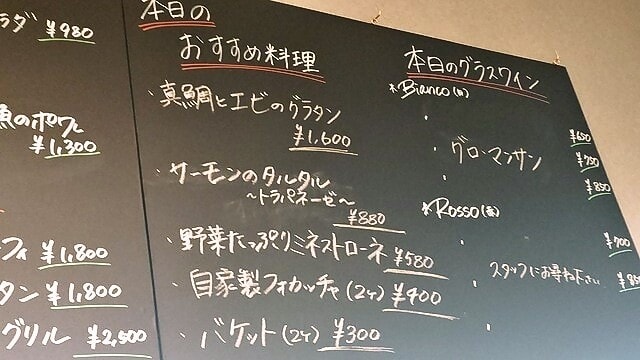 ラダ ¥980
魚のポワレ
¥1,300
フィ ¥1,800
タン ¥1,800
グリル ¥2,500
本日の
おすすめ料理
・真鯛とエビのグラタン
¥1,600
・サーモンのタルタル
~トラパネーゼ~
¥880
・野菜たっぷりミネストローネ ¥580
・自家製フォカッチャ(2ケ) ¥400
・バケット(2ケ) ¥300
本日のグラスワイン
Bianco(白)
・ ¥650
・グロ・マンサン ¥750
・ ¥850
Rosso(赤)
・ ¥700
・スタッフにお尋ね下さい